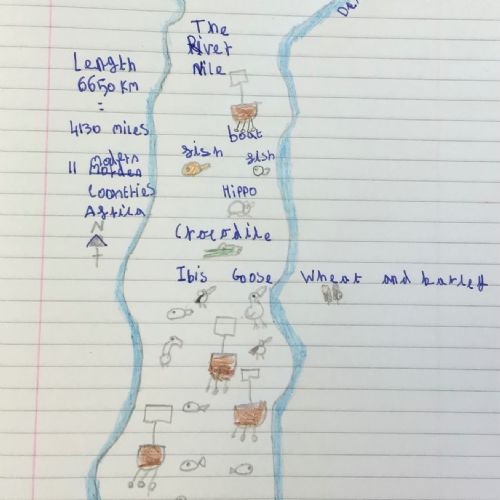 The
River
Nile
Length
6650 KM
=
4130 miles
11 modern
Countries
Africa
N
boat
fish fish
Hippo
Crocodile
Ibis Goose Wheat and barley